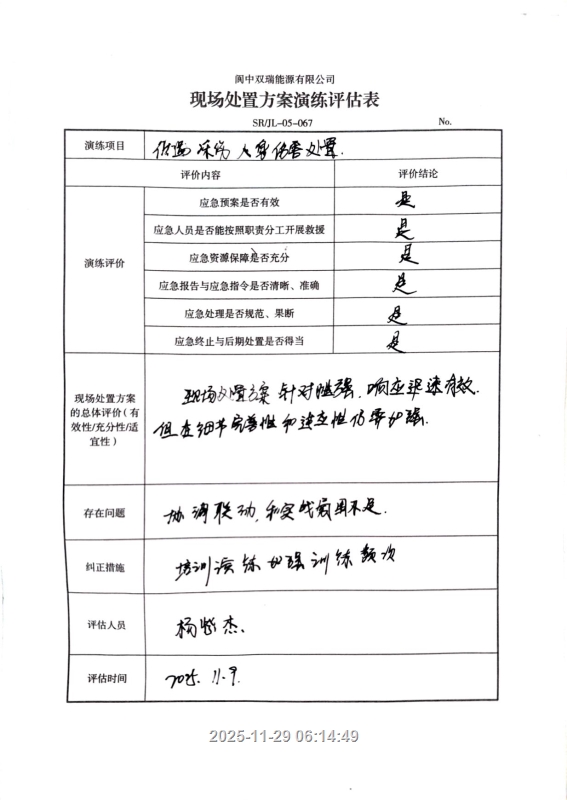 阆中双瑞能源有限公司
现场处置方案演练评估表
SR/JL-05-067 No.
演练项目 冻伤 人身伤害处置.
评价内容 评价结论
演练评价
应急预案是否有效 是
应急人员是否能按照职责分工开展救援 是
应急资源保障是否充分 是
应急报告与应急指令是否清晰、准确 是
应急处理是否规范、果断 是
应急终止与后期处置是否得当 是
现场处置方案
的总体评价(有
效性/充分性/适
宜性)
现场处置方案 针对性强,响应迅速有效.
但在细节完善性和适应性仍需加强.
存在问题 协调联动,和实战氛围不足.
纠正措施 培训演练 加强训练频次
评估人员 杨 杰.
评估时间 2025. 11. 9.
2025-11-29 06:14:49